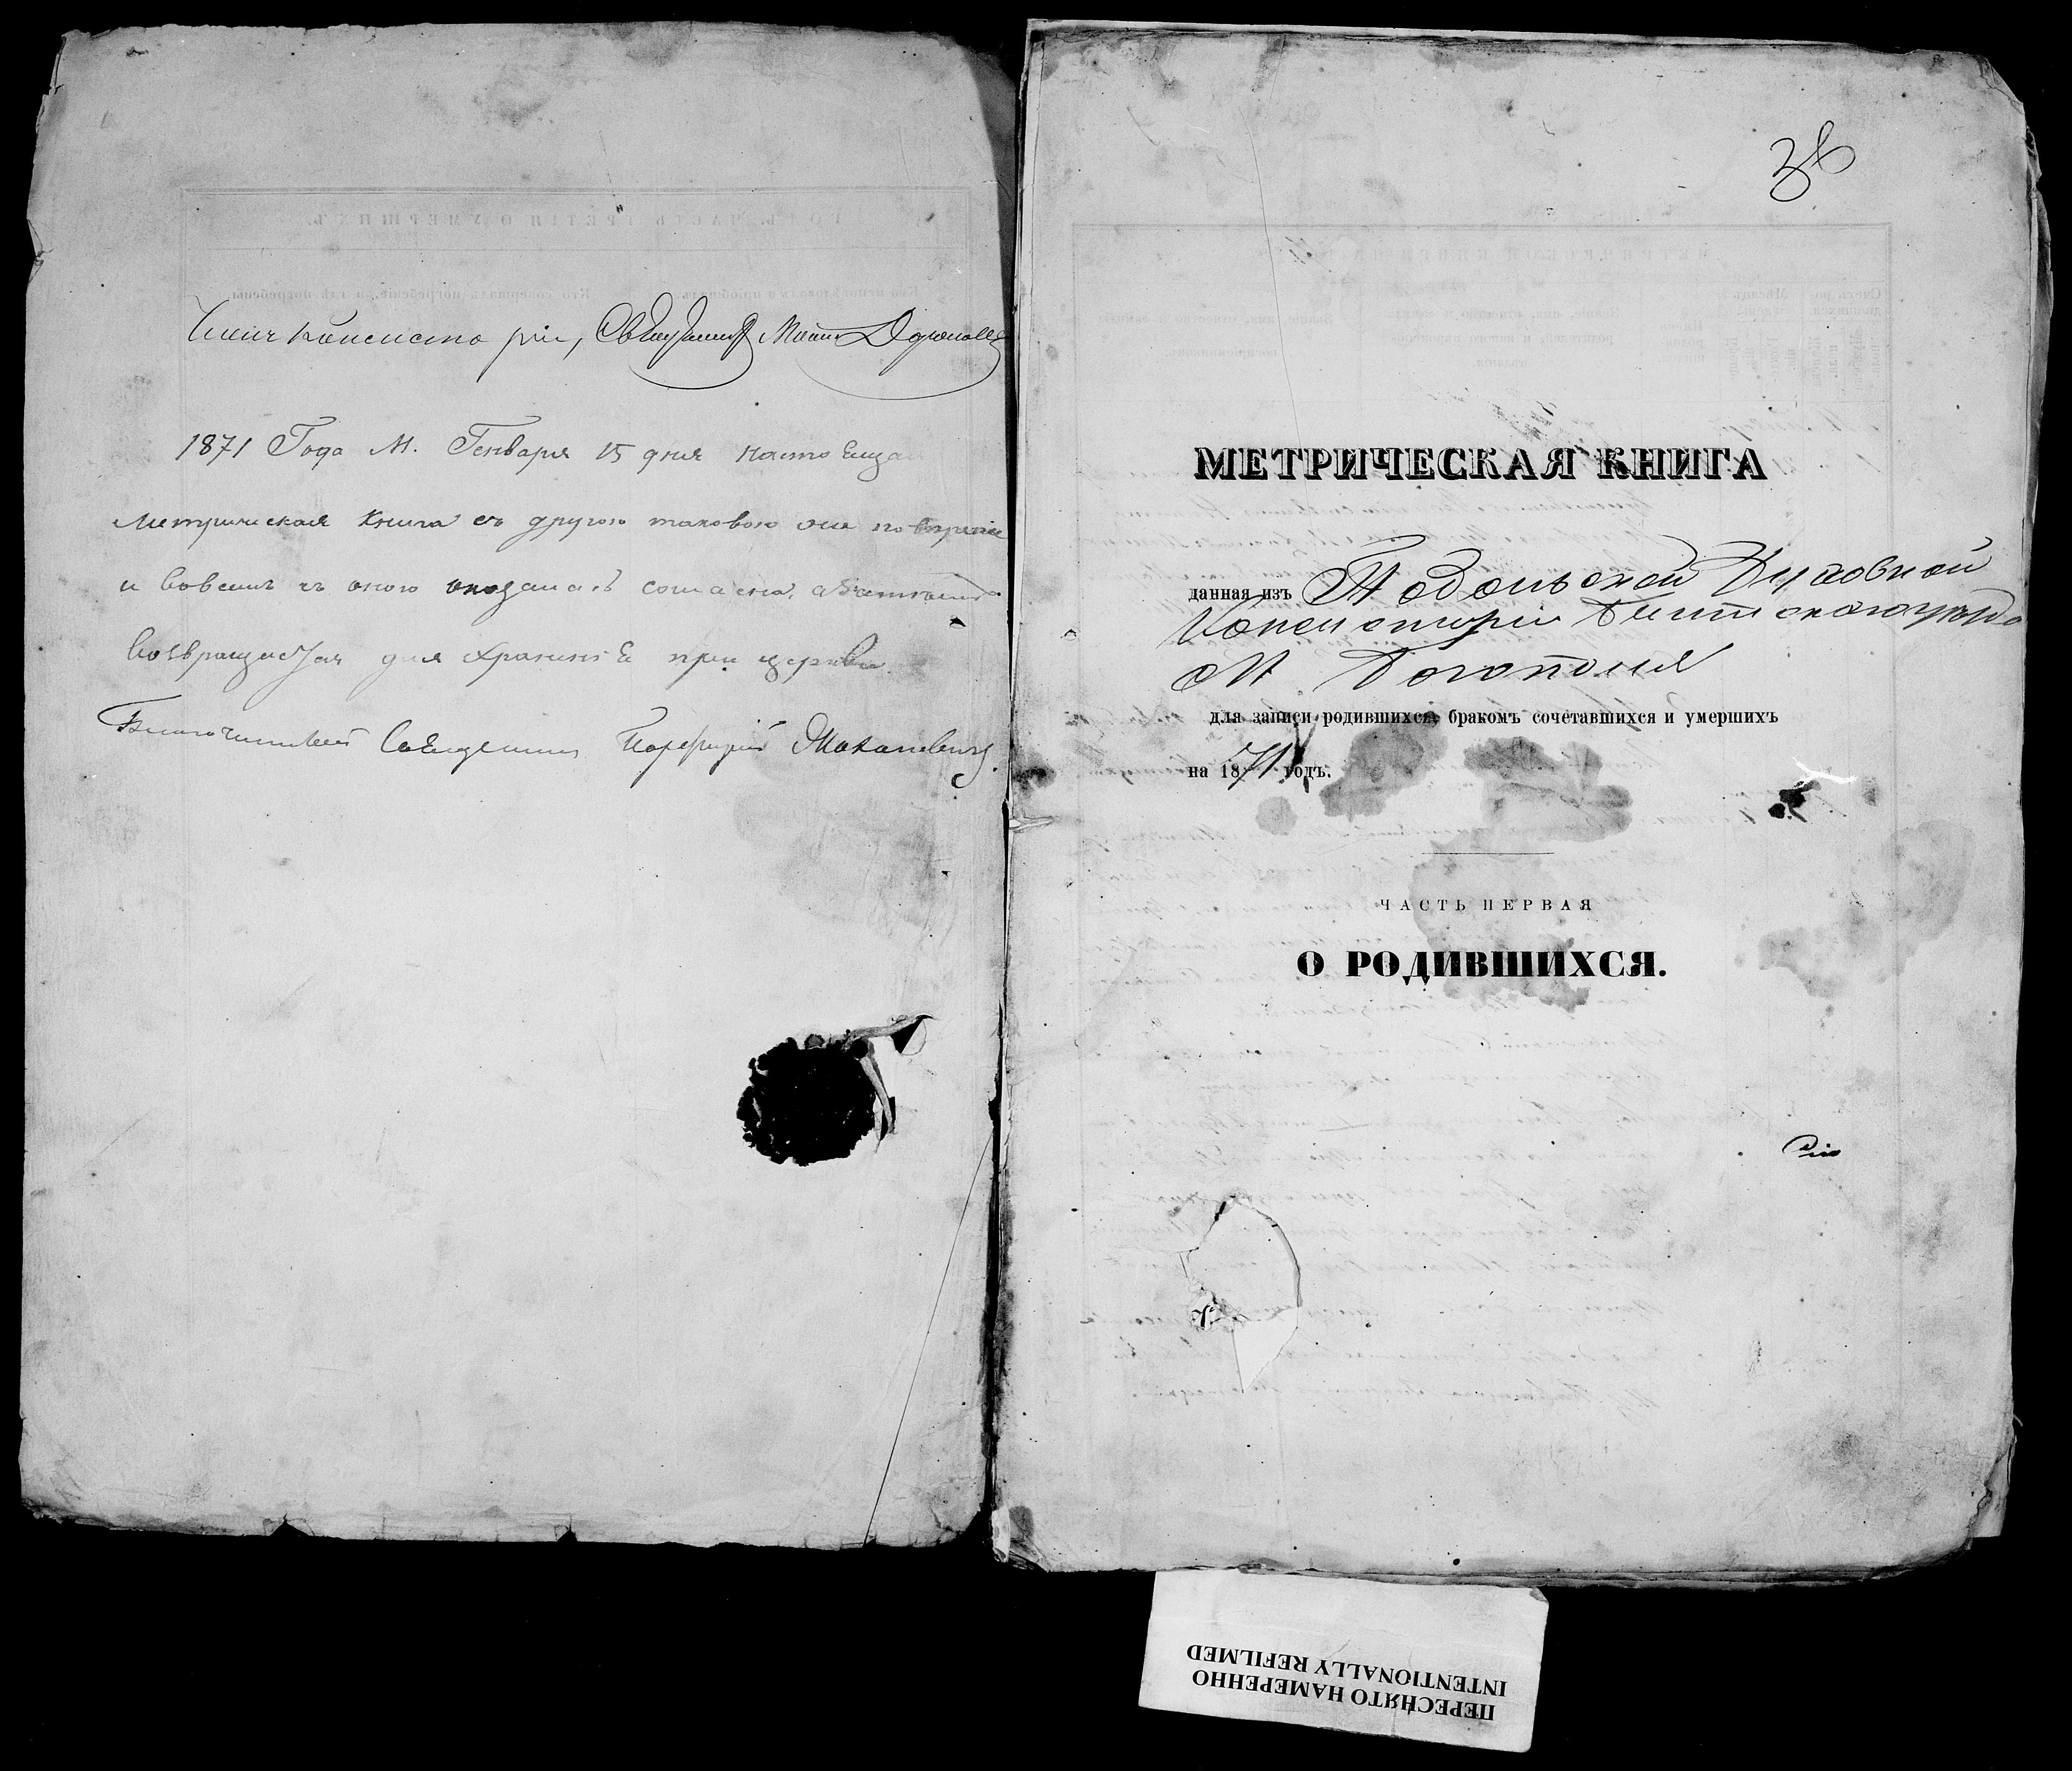 Членъ консисторіи, Священникъ
1871 Года М. Генваря 15 дня настоящая
Метрическая Книга съ другою таковою же по
и во всемъ съ оною оказалась согласна,
возвращается для храненія при церкви
Благочинный Священникъ Порфирій
38
МЕТРИЧЕСКАЯ КНИГА
данная изъ Подольской Духовной
Консисторіи Балтскаго уѣзда
М Богополя
для записи родившихся, бракомъ сочетавшихся и умершихъ
на 1871 годъ.
ЧАСТЬ ПЕРВАЯ
О РОДИВШИХСЯ.
ПЕРЕСНЯТО НАМЕРЕННО
INTENTIONALLY REFILMED